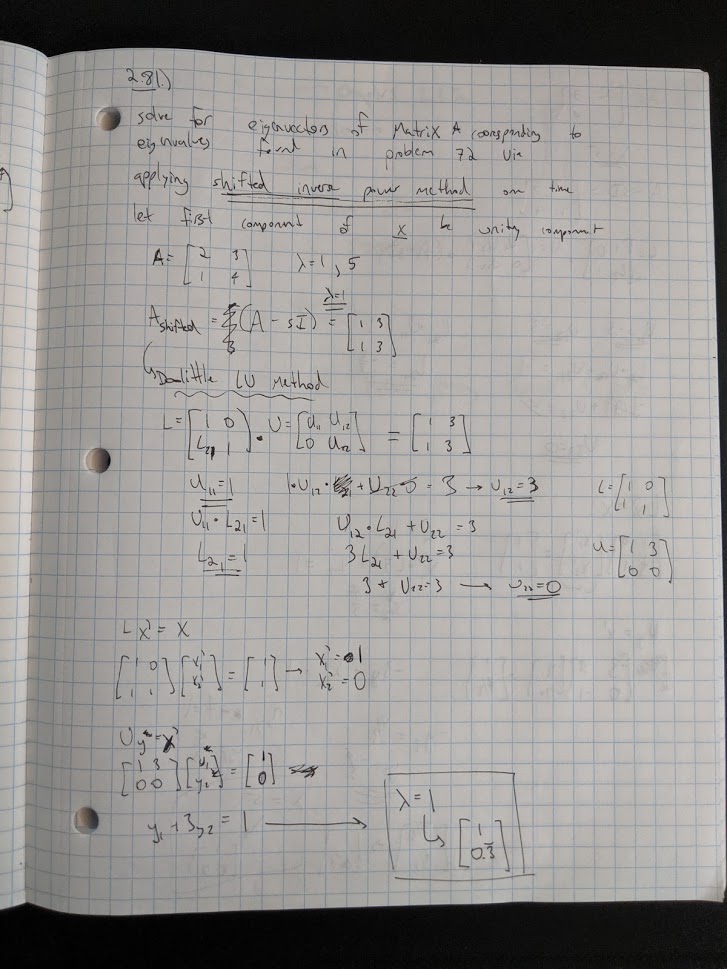 2.81.)
solve for eigenvectors of Matrix A coorsponding to
eigenvalues found in problem 72 via
applying shifted inverse power method on time
let first component of x be unity component
A = [2 3; 1 4] λ = 1, 5
A shifted = (A - sI) λ=1 = [1 3; 1 3]
↳ Doolittle LU Method
L = [1 0; L21 1] · U = [U11 U12; 0 U22] = [1 3; 1 3]
U11 = 1 1·U12 + U22 0 = 3 → U12 = 3 L = [1 0; 1 1]
U11 · L21 = 1 U12 · L21 + U22 = 3
L21 = 1 3L21 + U22 = 3 U = [1 3; 0 0]
3 + U22 = 3 → U22 = 0
L x' = x
[1 0; 1 1] [x1'; x2'] = [1; 1] → x1' = 1 x2' = 0
U y = x'
[1 3; 0 0] [y1; y2] = [1; 0]
y1 + 3y2 = 1 → λ = 1
↳ [1; 0.3̅]